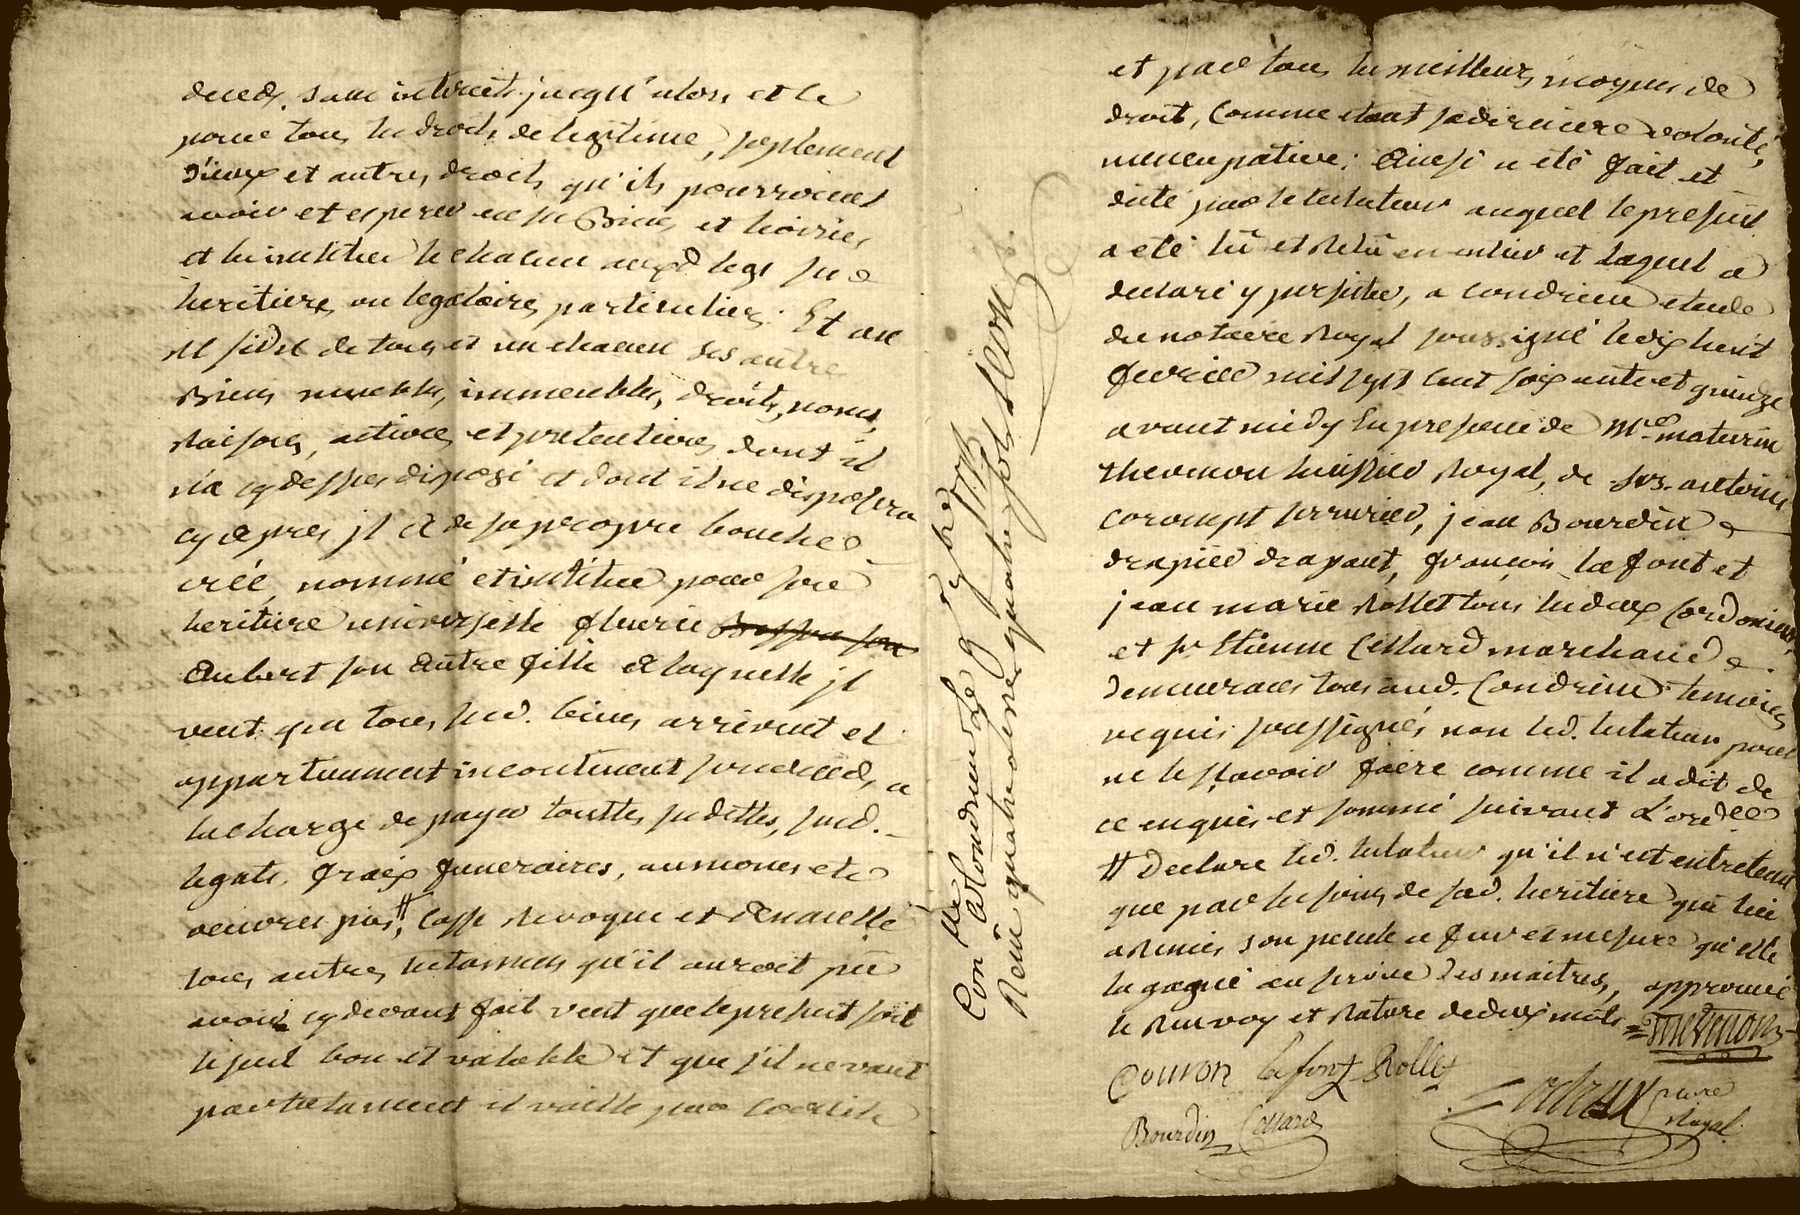 deceds. sans interests jusqu'alors et ce
pour tous les droits de legitime, suplement
d'icux et autres droits qu'ils pourroient
avoir et esperer en ses Biens et hoiries
et les institue le chacun auxd. legs ses
heritiers ou legataires particuliers. Et au
Residu de tous et un chacun ses autres
Biens meubles, immeubles, droits, noms,
Raisons, actions et pretentions dont il
n'a cy dessus disposé et dont il ne disposera
cy apres jl a de sa propre bouche
créé, nommé et institué pour son
heritiere universelle fleurie
Aubert son autre fille a laquelle jl
veut que tous sesd. biens arrivent et
appartiennent incontinent son deceds, a
la charge de payer touttes ses dettes, sesd.
legats, fraix funeraires, aumones et
oeuvres pies, # Casse Revoque et Annulle
tous autres testamens qu'il auroit pû
avoir cy devant fait veut que le present soit
le seul bon et valable et que s'il ne vaut
par testament il vaille par codicile
Con.lle a Condrieu le
Reçu quatre livres quatre sols
et par tous les meilleurs moyens de
droit, Comme etant sa derniere volonté
nuncupative: Ainsi a été fait et
dicté par le testateur auquel le present
a été lû et Relû en entier et dequel a
declaré y persister, a Condrieu etude
du notaire Royal soussigné le dix huit
fevrier mil sept cent soixante et quinze
avant midy En presence de Me. maturin
thevenon huissier Royal, de Srs. antoine
serrurier, jean Bourdin
drapier drapant, françois lafont et
jean marie Rollet tous les deux Cordoniers
et Sr Etienne Cellard marchand
demeurans tous aud. Condrieu temoins
requis soussignés non led. testateur pour
ne le sçavoir faire comme il a dit de
ce enquis et sommé suivant L'ordce
# Declare led. testateur qu'il n'est entretenu
que par les soins de sad. heritiere qui lui
a Remis son pecule a fur et mesure qu'elle
la gagné au service des maitres, approuvé
le Renvoy et Rature de deux mots = Thevenon
Couron lafont Rollet
Bourdin Cellard
nore
Royal